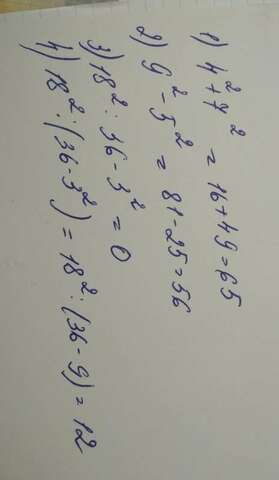 1) 4²+7² = 16+49=65
2) 9²-5² = 81-25=56
3) 18² : 36-3² = 0
4) 18² : (36-3²) = 18² : (36-9) = 12